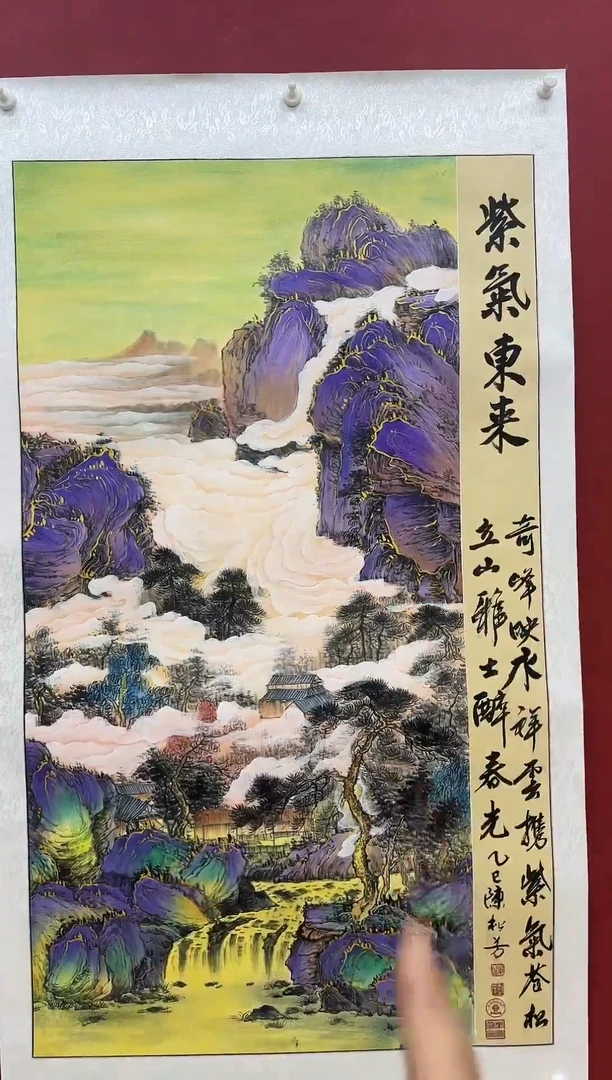 紫氣東来
奇峰映水祥雲攜紫氣苍松
立山雅士醉春光
乙巳陳松芳